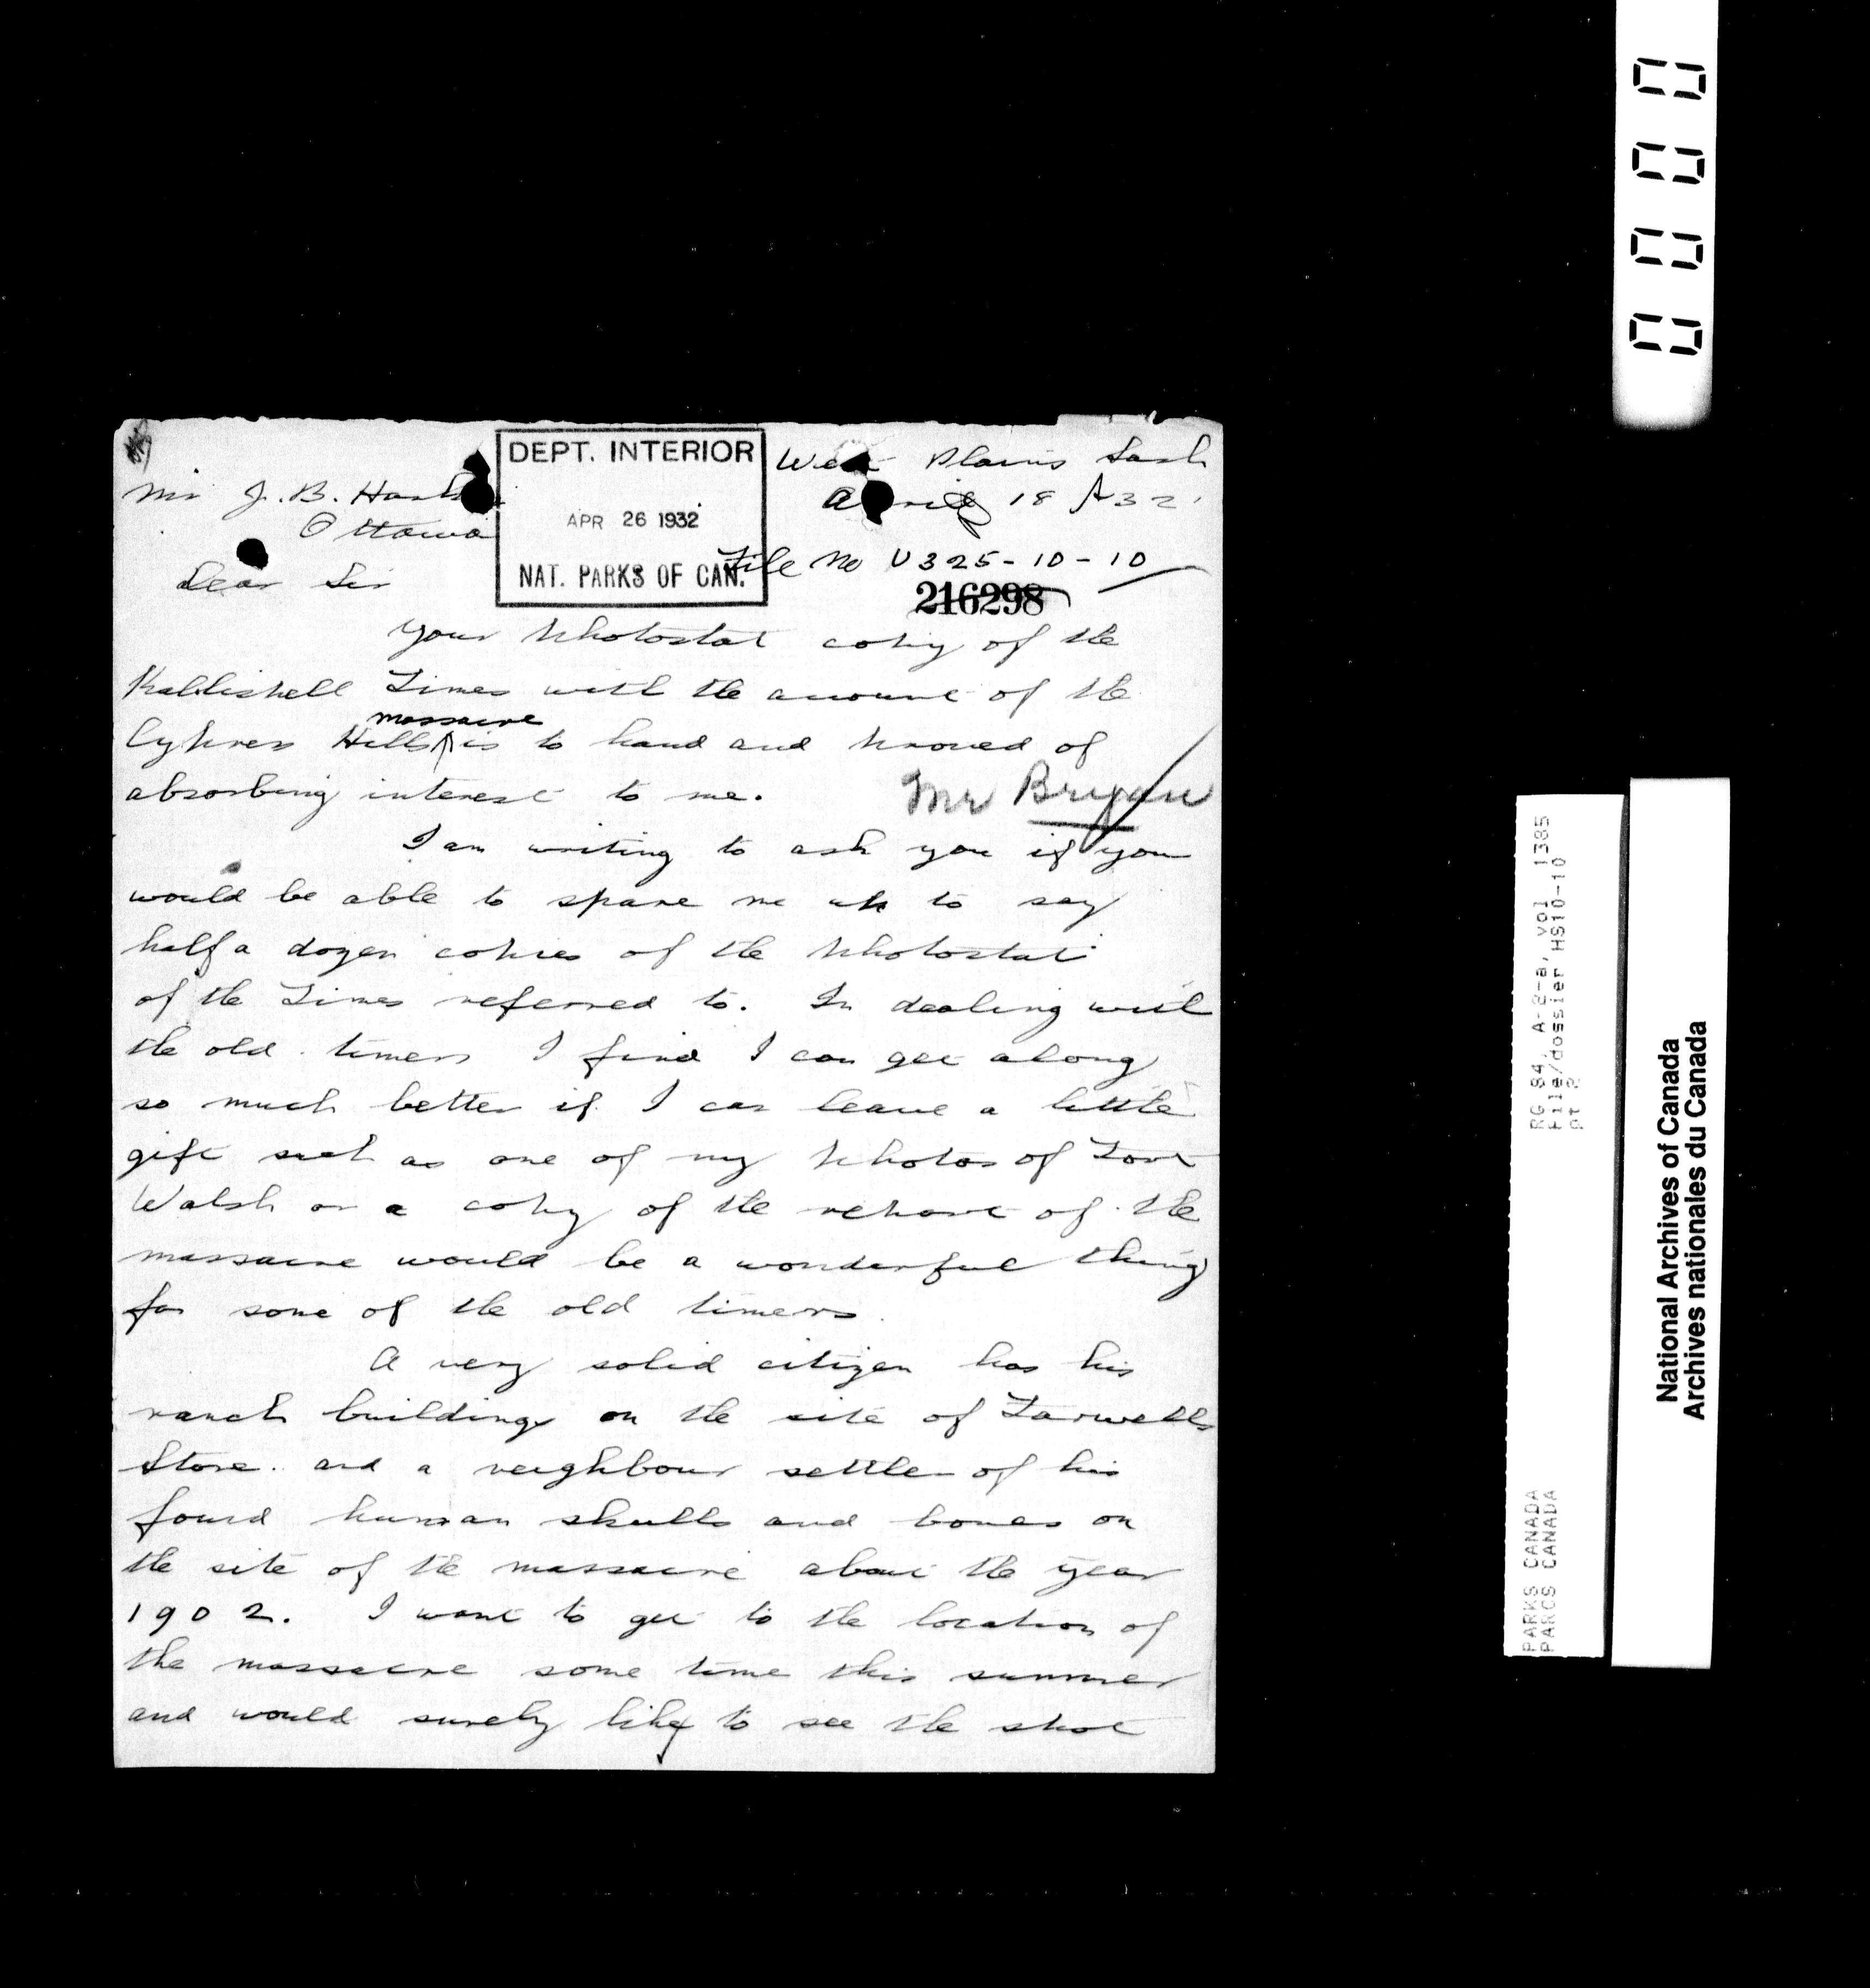 DEPT. INTERIOR
APR 26 1932
NAT. PARKS OF CAN.
West Plains Sask
April 18 / 32
Mr J. B. Hark
Ottawa
File No U 325-10-10
216298
Dear Sir
Your photostat copy of the
Kallishell Times with the account of the
massacre
Cypress Hills ^ is to hand and proved of
absorbing interest to me.
Mr Bryan
I am writing to ask you if you
would be able to spare me up to say
half a dozen copies of the photostat
of the Times referred to. In dealing with
the old timers I find I can get along
so much better if I can leave a little
gift such as one of my photos of Fort
Walsh or a copy of the report of the
massacre would be a wonderful thing
for some of the old timers.
A very solid citizen has his
ranch buildings on the site of Farwells
Store. and a neighbour settler of his
found human skulls and bones on
the site of the massacre about the year
1902. I want to get to the location of
the massacre some time this summer
and would surely like to see the shot
0000
RG 84, A-2-a, vol 1385
File/dossier HS10-10
pt 2
PARKS CANADA
PARCS CANADA
National Archives of Canada
Archives nationales du Canada